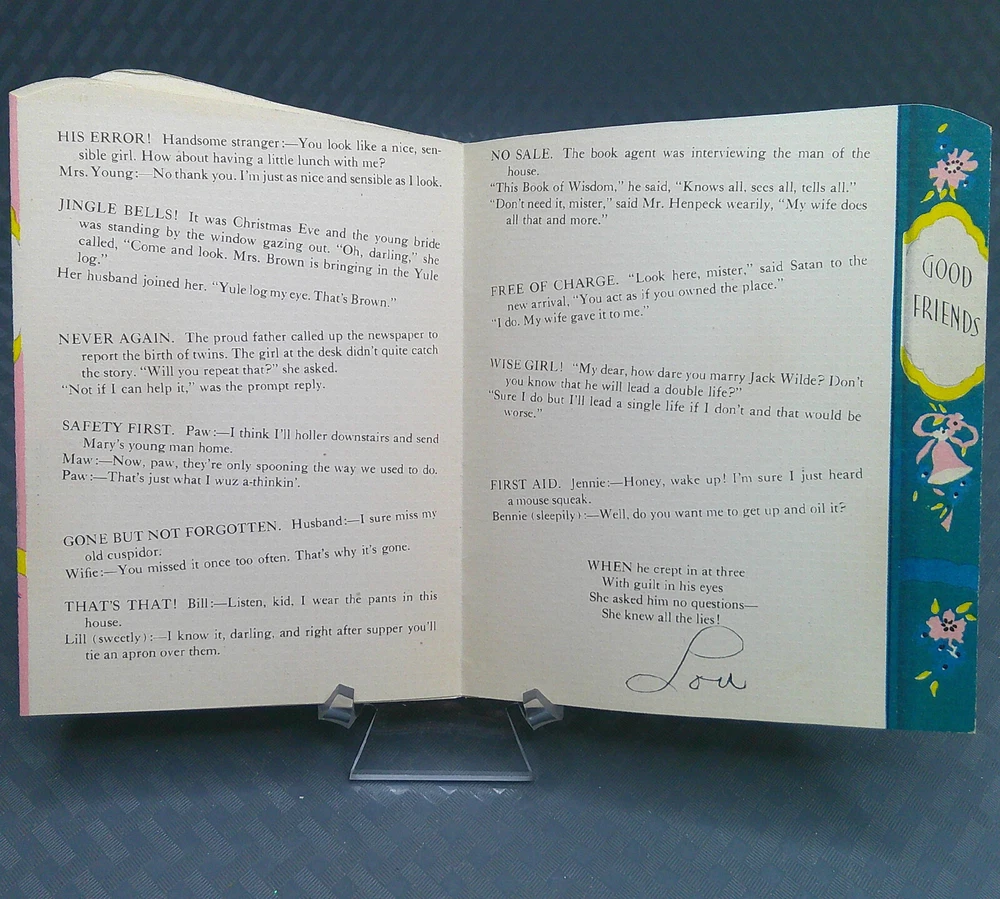 HIS ERROR! Handsome stranger:—You look like a nice, sen-
sible girl. How about having a little lunch with me?
Mrs. Young:—No thank you. I'm just as nice and sensible as I look.
JINGLE BELLS! It was Christmas Eve and the young bride
was standing by the window gazing out. "Oh, darling," she
called, "Come and look. Mrs. Brown is bringing in the Yule
log."
Her husband joined her. "Yule log my eye. That's Brown."
NEVER AGAIN. The proud father called up the newspaper to
report the birth of twins. The girl at the desk didn't quite catch
the story. "Will you repeat that?" she asked.
"Not if I can help it," was the prompt reply.
SAFETY FIRST. Paw:—I think I'll holler downstairs and send
Mary's young man home.
Maw:—Now, paw, they're only spooning the way we used to do.
Paw:—That's just what I wuz a-thinkin'.
GONE BUT NOT FORGOTTEN. Husband:—I sure miss my
old cuspidor.
Wifie:—You missed it once too often. That's why it's gone.
THAT'S THAT! Bill:—Listen, kid, I wear the pants in this
house.
Lill (sweetly):—I know it, darling, and right after supper you'll
tie an apron over them.
NO SALE. The book agent was interviewing the man of the
house.
"This Book of Wisdom," he said, "Knows all, sees all, tells all."
"Don't need it, mister," said Mr. Henpeck wearily, "My wife does
all that and more."
FREE OF CHARGE. "Look here, mister," said Satan to the
new arrival, "You act as if you owned the place."
"I do. My wife gave it to me."
WISE GIRL! "My dear, how dare you marry Jack Wilde? Don't
you know that he will lead a double life?"
"Sure I do but I'll lead a single life if I don't and that would be
worse."
FIRST AID. Jennie:—Honey, wake up! I'm sure I just heard
a mouse squeak.
Bennie (sleepily):—Well, do you want me to get up and oil it?
WHEN he crept in at three
With guilt in his eyes
She asked him no questions—
She knew all the lies!
Lou
GOOD
FRIENDS